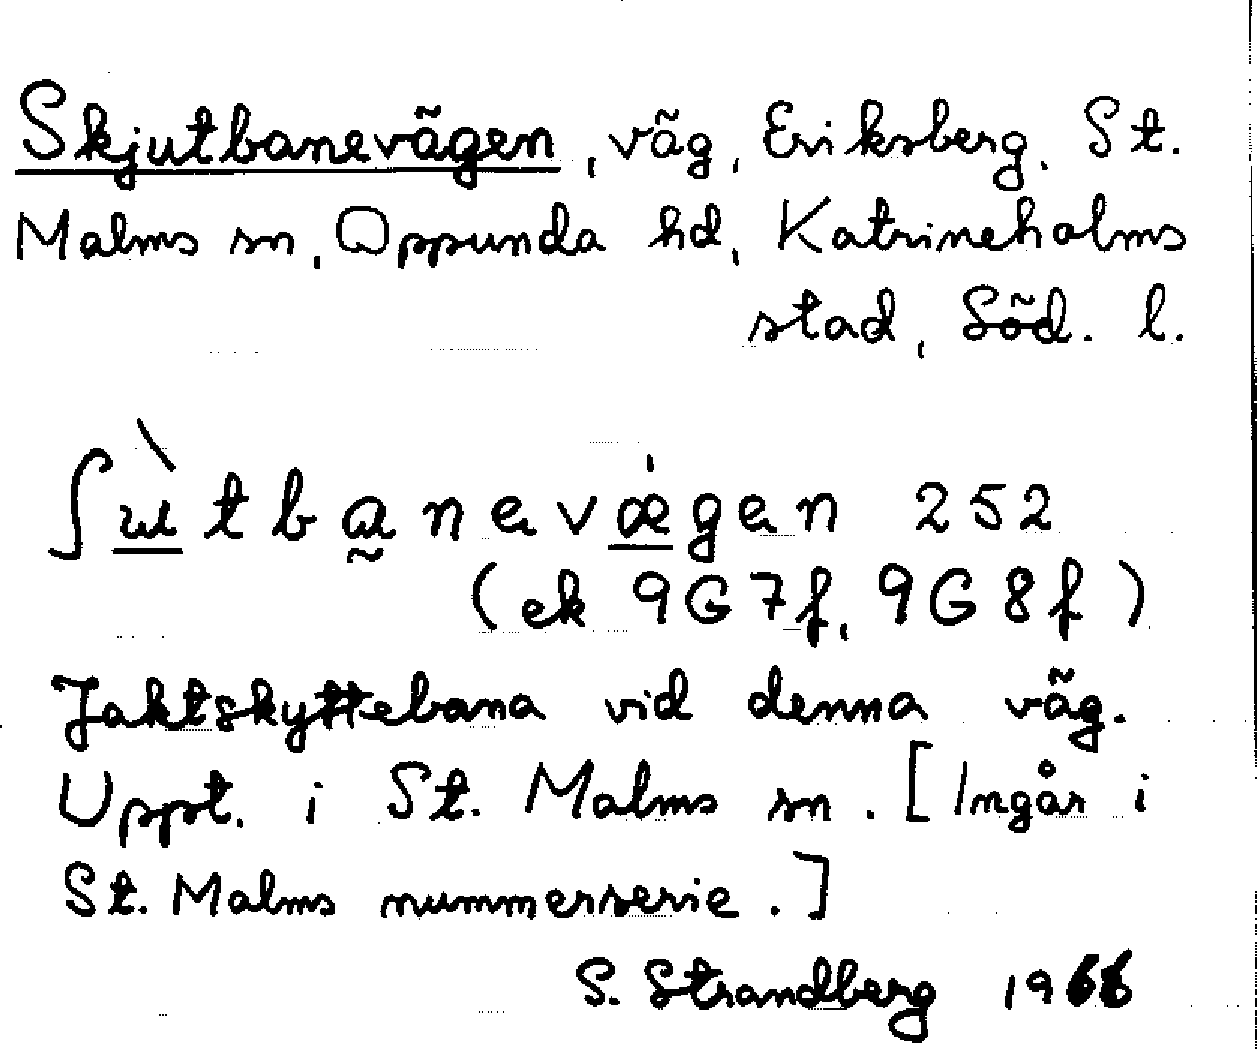 Skjutbanevägen, väg, Eriksberg, St.
Malms sn, Oppunda hd, Katrineholms
stad, Söd. l.
ʃùtba̰nevǽgen 252
(ek 9G7f, 9G8f)
Jaktskyttebana vid denna väg.
Uppt. i St. Malms sn. [Ingår i
St. Malms nummerserie.]
S. Strandberg 1966